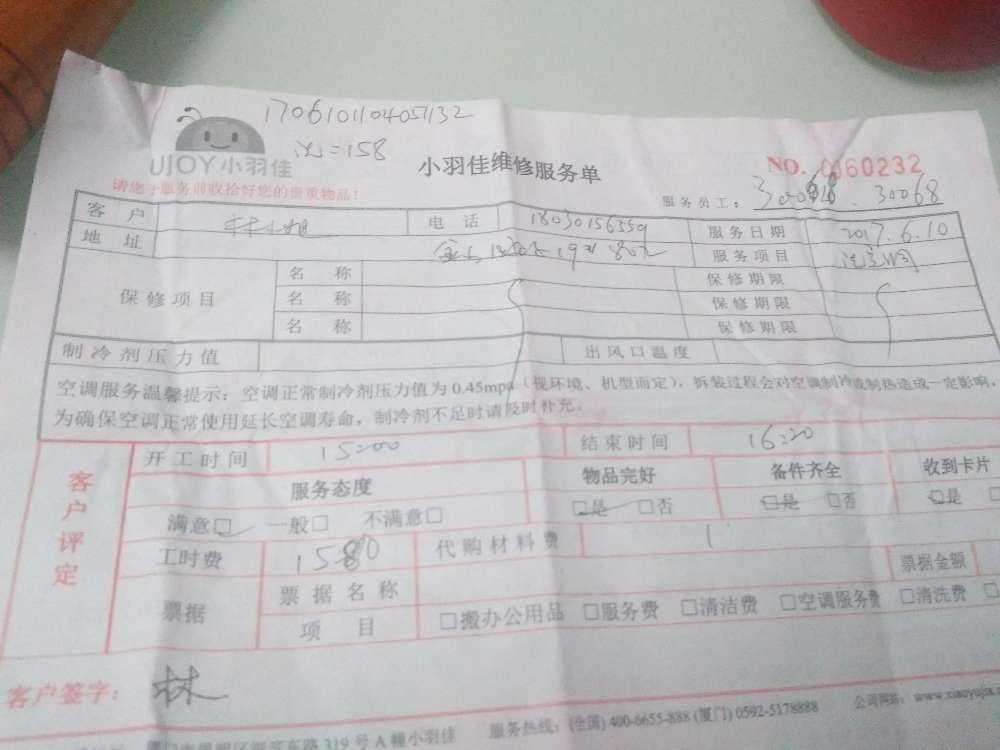 1706101104057132
沈=158
UJOY小羽佳
小羽佳维修服务单
NO. 0060232
请您于服务前收拾好您的贵重物品！
服务员工： 30068
客 户 林小姐 电 话 18030156559 服务日期 2017.6.10
地 址 服务项目
保修项目
名 称 保修期限
名 称 保修期限
名 称 保修期限
制冷剂压力值 出风口温度
空调服务温馨提示：空调正常制冷剂压力值为 0.45mpa（视环境、机型而定），拆装过程会对空调制冷或制热造成一定影响，
为确保空调正常使用延长空调寿命，制冷剂不足时请及时补充。
客户评定
开工时间 15:00 结束时间 16:20
服务态度 物品完好 备件齐全 收到卡片
满意□ 一般□ 不满意□ □是 □否 □是 □否 □是 □
工时费 158 代购材料费
票据 票据名称 票据金额
项 目 □搬办公用品 □服务费 □清洁费 □空调服务费 □清洗费 □
客户签字： 林
319 号 A 幢小羽佳 服务热线：(全国) 400-6655-888 (厦门) 0592-5178888 公司网站： www.xiaoyujia.c